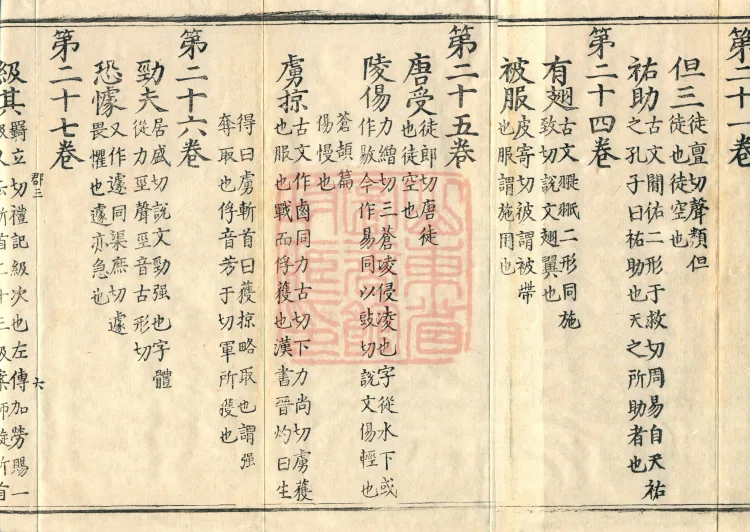 第二十一卷
但三徒亶切聲類但
徒也徒空也
祐助古文閣佑二形于救切周易自天祐
之孔子曰祐助也天之所助者也
第二十四卷
有翅古文䮎䏿二形同施
致切說文翅翼也
被服皮寄切被謂被帶
也服謂施用也
第二十五卷
唐受徒郎切唐徒
也徒空也
陵傷力繒切三蒼凌侵凌也字從水下或
作敭今作易同以豉切說文傷輕也
蒼頡篇
傷慢也
虜掠古文作鹵同力古切下力尚切虜獲
也服也戰而俘獲也漢書晉灼曰生
得曰虜斬首曰獲掠略取也謂强
奪取也俘音芳于切軍所獲也
第二十六卷
勁夫居盛切說文勁强也字體
從力巠聲巠音古形切
恐懅又作遽同渠庶切遽
畏懼也遽亦急也
第二十七卷
郡三
六
級其羇立切禮記級次也左傳加勞賜一